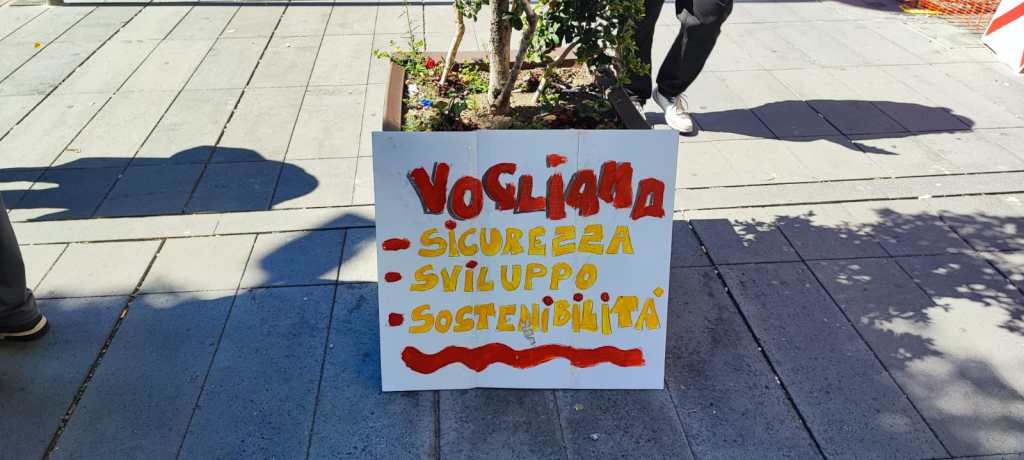 VOGLIAMO
- SICUREZZA
- SVILUPPO
- SOSTENIBILITÀ